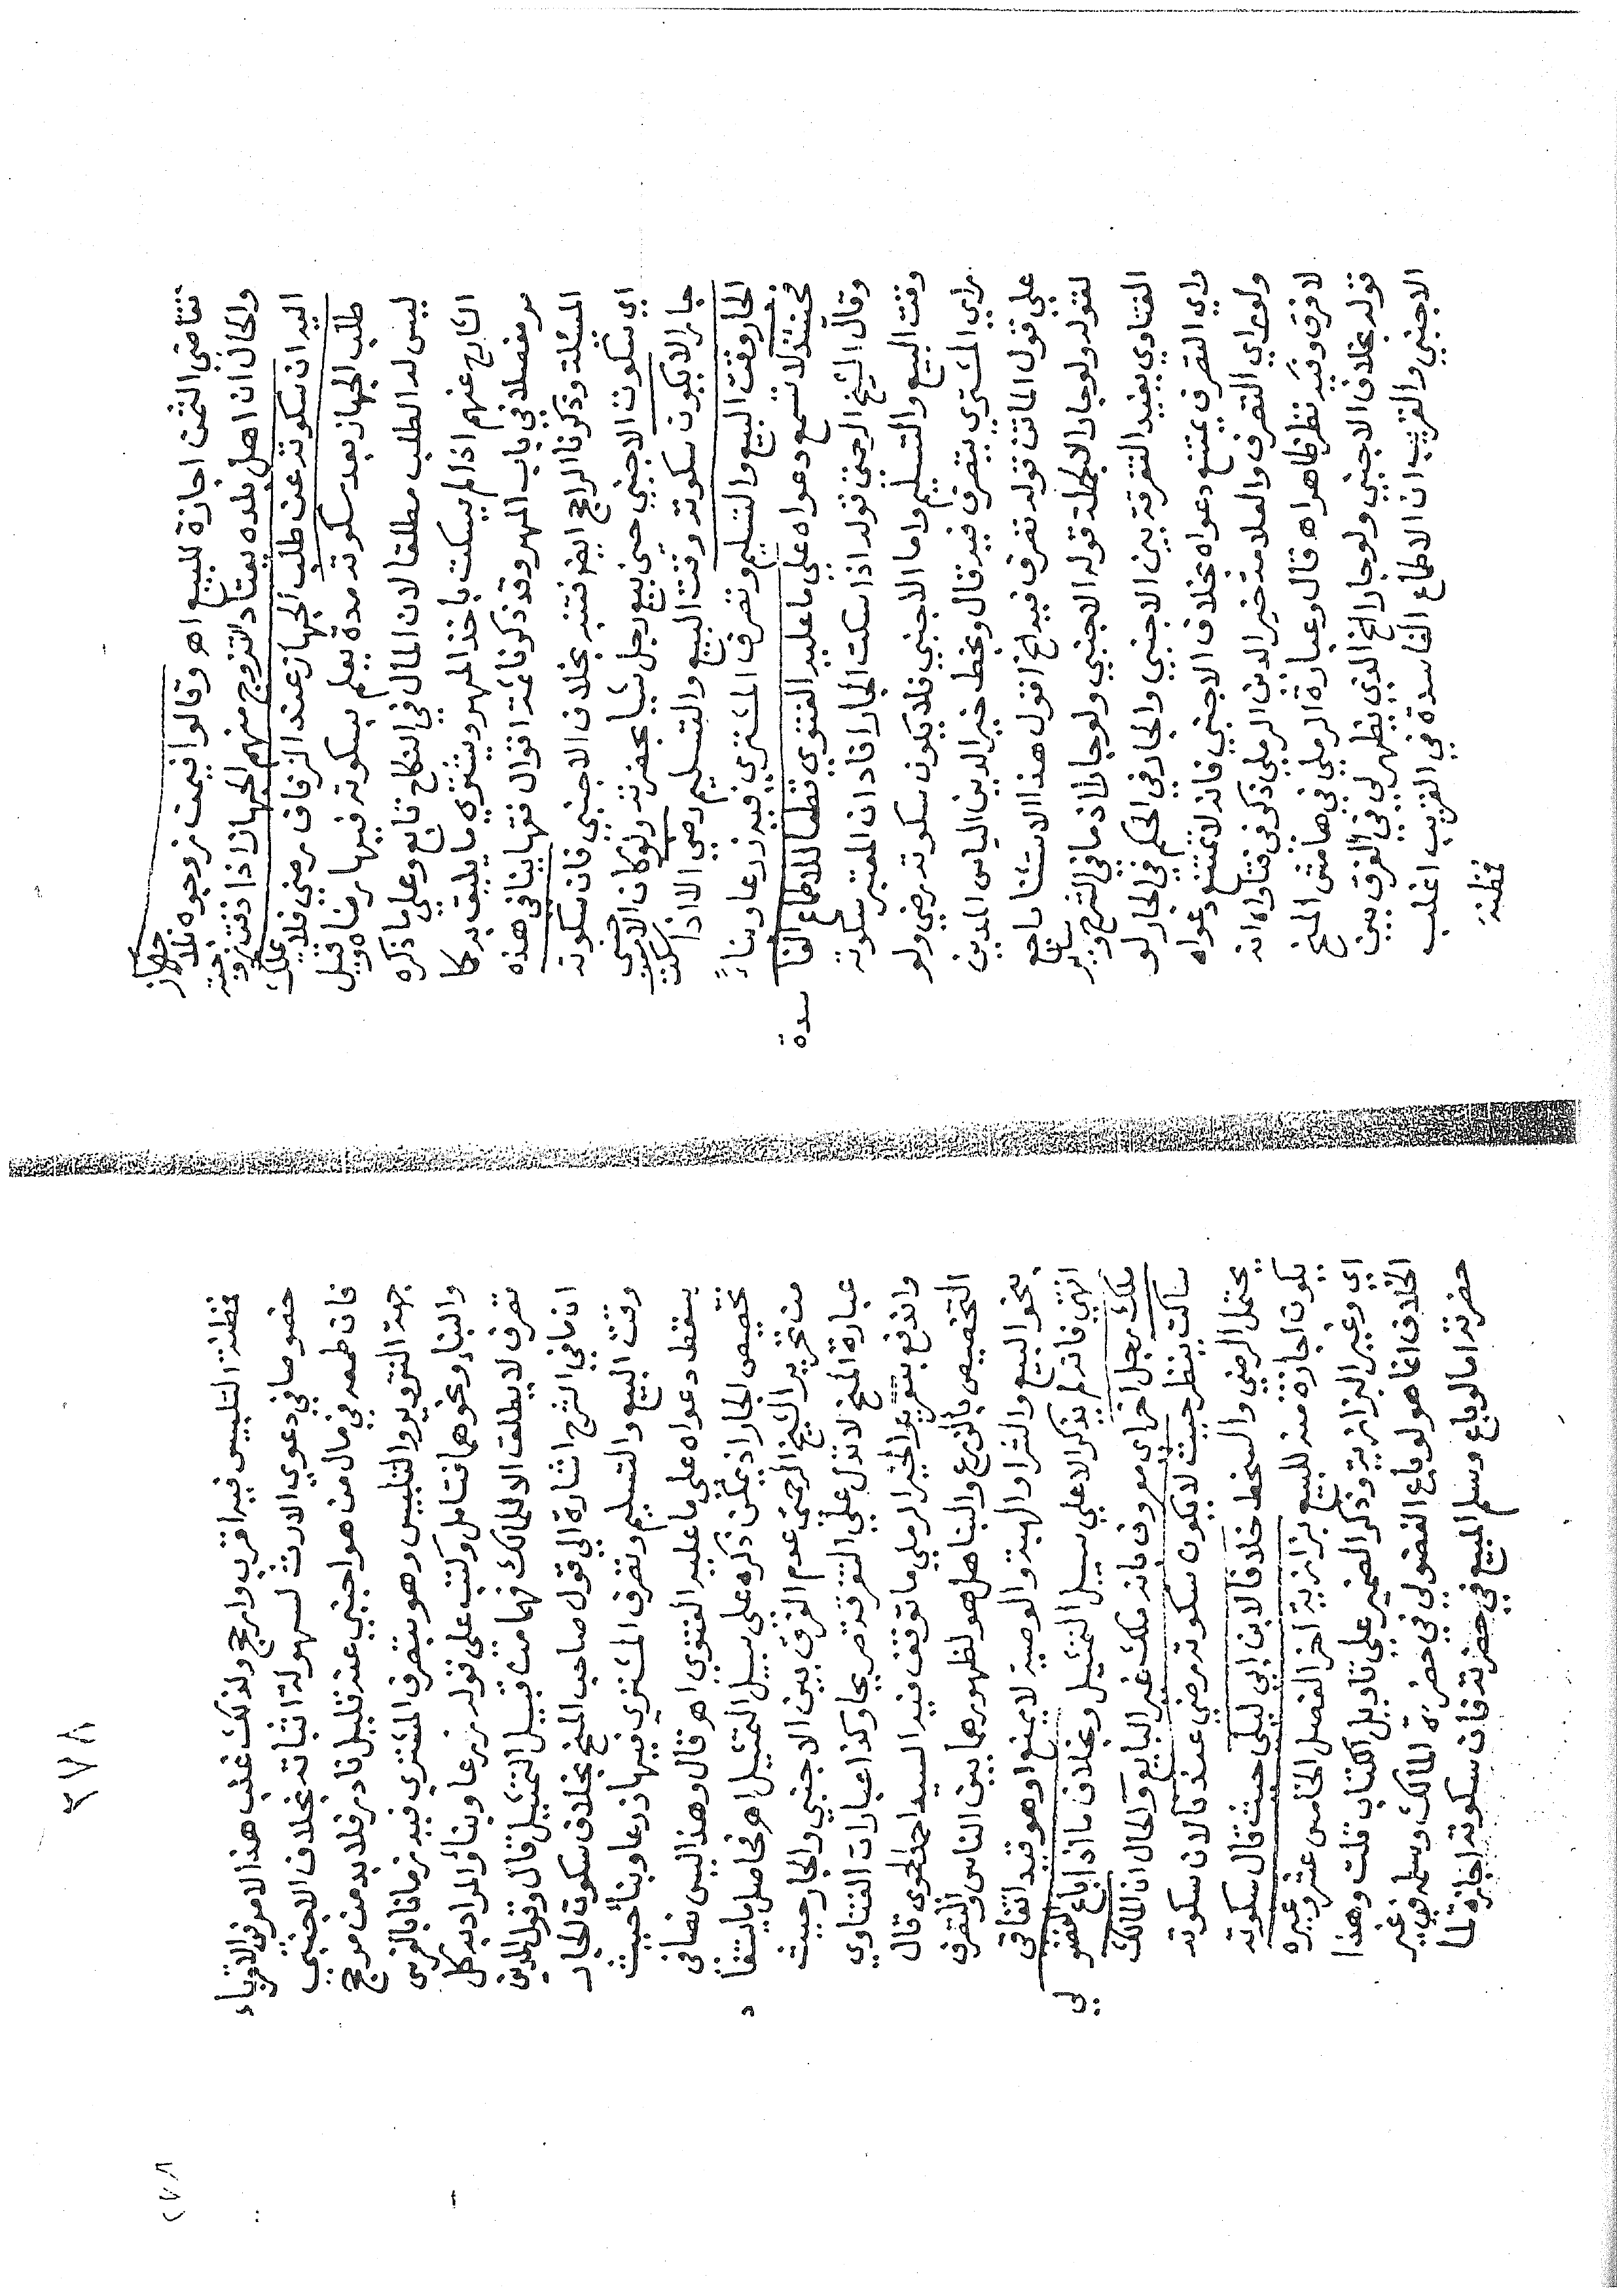 تقاضي الثمن اجازة للبيع اه وقالوا فيمن زوجوه بلا جهاز
والحال ان اهل بلده يعتاد التزوج منهم الجهاز اذا زفت زوجته
اليه ان سكوته عن طلب الجهاز عند الزفاف رضي فلا يملك
طلب الجهاز بعد سكوته مدة يعلم بسكوته فيها رضاه وقيل
ليس له الطلب مطلقا لان المال في النكاح تابع وعلي ما ذكره
الشارح عنهم اذا لم يسكت ياخذ المهر ويشتري ما يليق به كما
مر مفصلا في باب المهر وقد ذكرنا ثمة اقوال فقهاينا في هذه
المسئلة وذكرنا الراجح ايضا فتنبه بخلاف الاجنبي فان سكوته
اي سكوت الاجنبي حين بيع رجل شيا بحضرته ولو كان الاجنبي
جارا لا يكون سكوته وقت البيع والتسليم رضي الا اذا سكت
الجار وقت البيع والتسليم وتصرف المشتري فيه زرعا وبناءً
فحينئذ لا تسمع دعواه علي ما عليه الفتوي قطعا للاطماع الفاسدة
وقال الشيخ الرحمتي قوله اذا سكت الجار افاد ان المعتبر سكوته
وقت البيع والتسليم واما الاجنبي فلا يكون سكوته رضي ولو
براي المشتري يتصرف فيه قال وبخط خير الدين الياس المدين
علي قول الماتن قوله تصرف فيه الخ اقول هذا الاستثنا راجع
لقوله ولو جارا لا بجملة قوله الاجنبي ولو جارا اذ ما في الشرح وساير
الفتاوي يفيد التفرقة بين الاجنبي والجار في الحكم في الجار لو
راي التصرف يمتنع دعواه بخلاف الاجنبي فانه لا تمتنع دعواه
ولو راي التصرف والعلامة خير الدين الرملي ذكر في فتاواه انه
لا فرق وفيه نظر ظاهر اه قال وعبارة الرملي في هامش المنح
قوله بخلاف الاجنبي ولو جارا الخ الذي يظهر لي في الفرق بين
الاجنبي والقريب ان الاطماع الفاسدة في القريب اغلب
مظنة
٢٧٨
٢٧٨
مظنة التلبيس فيه اقرب وارجح ولذلك غلب هذا الامر في الاقرباء
خصوصا في دعوي الارث لسهولة اثباته بخلاف الاجنبي
فان طمعه في مال من هو اجنبي عنه قليل نادر فلا بد من مرجح
جهة التزوير والتلبيس وهو بتصرف المشتري فيه زمانا بالغرس
والبناء ونحوهما فتامل وكتب علي قوله زرعا وبناؤ المراد به كل
تصرف لا يطلق الا للمالك فهما من قبيل التمثيل قال وقول المدين
ان ما في الشرح اشارة الي قول صاحب المنح بخلاف سكوت الجار
وقت البيع والتسليم وتصرف المشتري فيها زرعا وبناء حيث
يسقط دعواه علي ما عليه الفتوي اه قال وهذا ليس نصا في
تخصيص الجار اذ يمكن ذكره علي سبيل التمثيل اه فحاصل ما يستفاد
من تحرير الشيخ الرحمتي عدم الفرق بين الاجنبي والجار حيث
عبارة المنح لا تدل علي التفرقة صريحا وكذا عبارات الفتاوي
واندفع بتقرير الخير الرملي ما توقف فيه السيد احمد الحموي قال
التخصيص بالزرع والبنا هل هو لظهورهما بين الناس والتصرف
بنحو البيع والشرا والهبة والوصية لا يمنع او هو قيد اتفاقي
انتهي فانه لم يذكر الا علي سبيل التمثيل وبخلاف ما اذا باع الفضولي
ملك رجل اخر اي معروف بانه ملك غير البايع والحال ان المالك
ساكت ينظر حيث لا يكون سكوته رضي عندنا لان سكوته
يحتمل الرضي والسخط خلافا لابن ابي ليلي حيث قال سكوته
يكون اجازة منه للبيع بزازية اخر الفصل الخامس عشر وغيره
اي وغير البزازية وذكر الضمير علي تاويل الكتاب قلت وهذا
الخلاف انما هو لو باع الفضولي في حضرة المالك وسلمه في غير
حضرته اما لو باع وسلم المبيع في حضرته فان سكوته اجازة لما